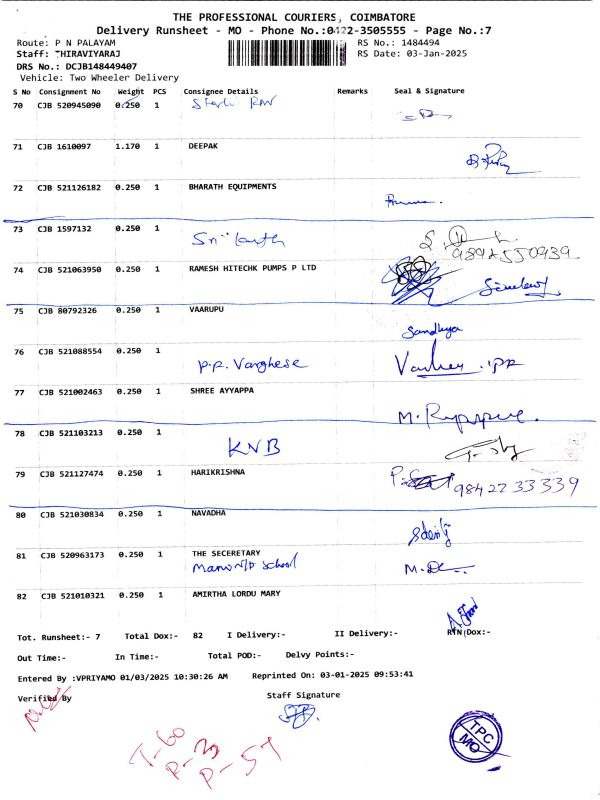 THE PROFESSIONAL COURIERS, COIMBATORE
Delivery Runsheet - MO - Phone No.:0422-3505555 - Page No.:7
Route: P N PALAYAM RS No.: 1484494
Staff: THIRAVIYARAJ RS Date: 03-Jan-2025
DRS No.: DCJB148449407
Vehicle: Two Wheeler Delivery
S No Consignment No Weight PCS Consignee Details Remarks Seal & Signature
70 CJB 520945090 0.250 1
71 CJB 1610097 1.170 1 DEEPAK
72 CJB 521126182 0.250 1 BHARATH EQUIPMENTS
73 CJB 1597132 0.250 1
9894550939
74 CJB 521063950 0.250 1 RAMESH HITECHK PUMPS P LTD
75 CJB 80792326 0.250 1 VAARUPU
Sandhya
76 CJB 521088554 0.250 1 P.P. Varghese
77 CJB 521002463 0.250 1 SHREE AYYAPPA
78 CJB 521103213 0.250 1 KNB
79 CJB 521127474 0.250 1 HARIKRISHNA
9842233339
80 CJB 521030834 0.250 1 NAVADHA
81 CJB 520963173 0.250 1 THE SECERETARY
School
82 CJB 521010321 0.250 1 AMIRTHA LORDU MARY
Tot. Runsheet:- 7 Total Dox:- 82 I Delivery:- II Delivery:- RTN Dox:-
Out Time:- In Time:- Total POD:- Delvy Points:-
Entered By :VPRIYAMO 01/03/2025 10:30:26 AM Reprinted On: 03-01-2025 09:53:41
Verified By Staff Signature
T-60
P-57
TPC
MO